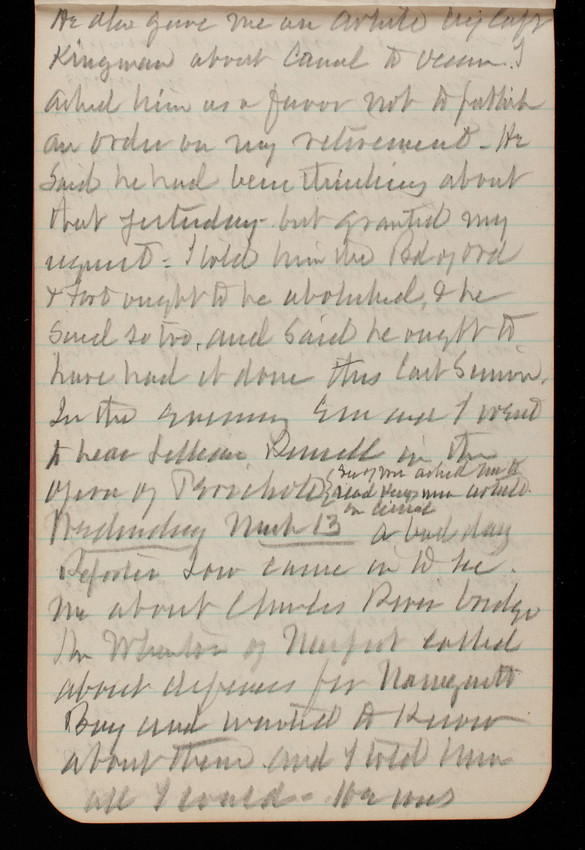 He also gave me an article by Capt
Kingman about Canal to ocean. I
asked him as a favor not to publish
an order on my retirement - He
said he had been thinking about
that yesterday - but granted my
request - I told him the Bd of Ord
& Fort ought to be abolished, & he
said so too, and said he ought to
have had it done this last
In the evening Em and I went
to hear Lillian Russell in the
opera of Perichole
asked me to
read Kingman article
on canal
Wednesday March 13 a bad day
came in to see
me about Charles River bridge
Wheaton of Newport called
about defenses for Narragansett
Bay and wanted to know
about them and I told him
all I could - He was